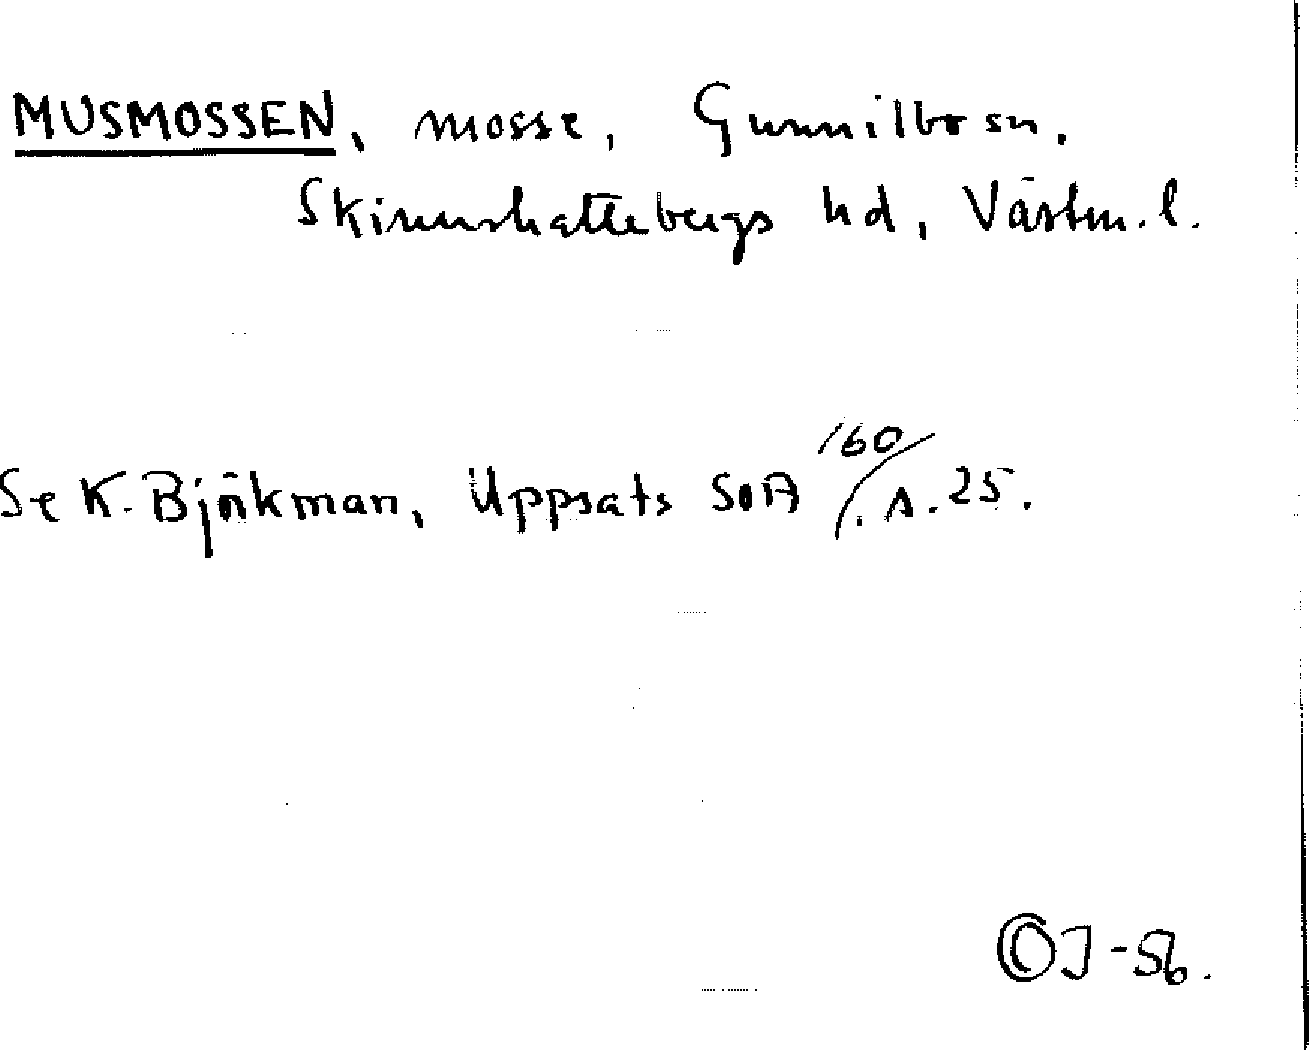 MUSMOSSEN, mosse, Gunnilbo sn.
Skinnskattebergs hd, Västm. l.
Se K. Björkman, Uppsats SOA 160/. s. 25.
©OJ-56.